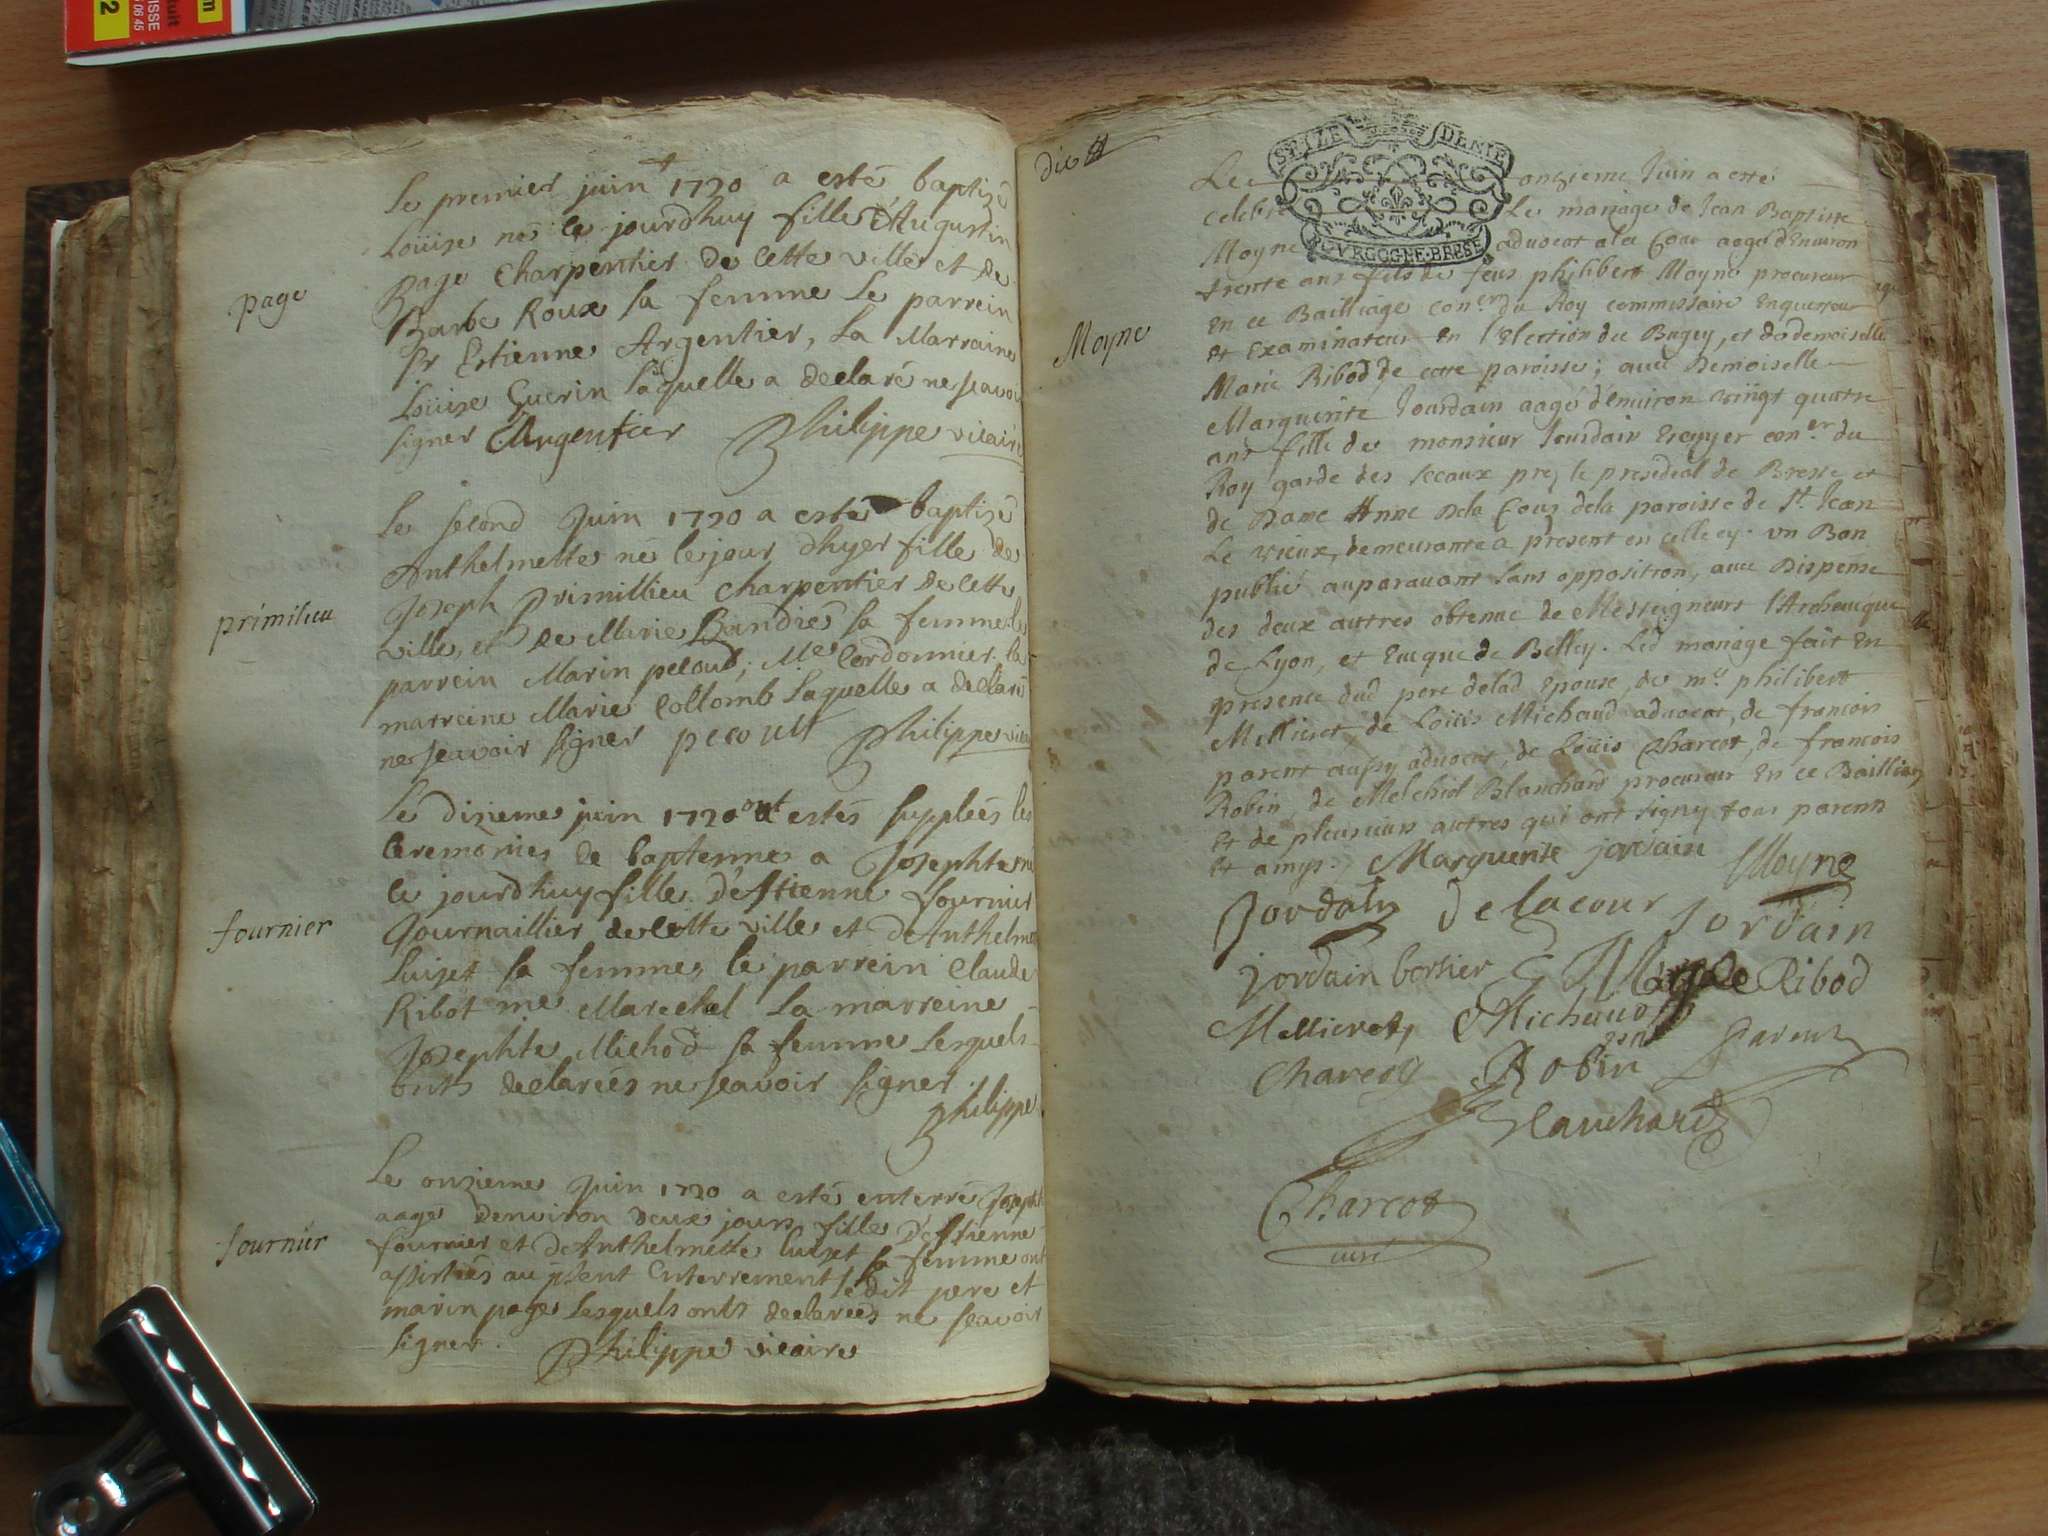 Le premier juin 1720 a esté baptizé
Loüise né le jourdhuy fille d'Augustin
page
page Charpentier de cette ville et de
Barbe Roux sa femme Le parrein
Sr Estienne Argentier, La Marraine
Loüise Guerin Laquelle a declaré ne scavoir
signer Argentier Philippe vicaire
Le second Juin 1720 a esté baptizé
Anthelmette né le jour dhyer fille de
primilieu
Joseph Primillieu charpentier de cette
ville, et de Marie Bandié sa femme le
parrein Marin pecoul; Me Cordonnier. la
marreine Marie Collomb Laquelle a declaré
ne scavoir signer pecoult Philippe vicai
Le dixieme juin 1720 ont estés supplées les
Ceremonies de baptenne a Josephte né
le jourdhuy fille d'Estienne fournier
fournier
Journaillier de cette ville et d'Anthelme
Luizet sa femme, le parrein Claude
Ribot me Marechal La marreine
Josephte Michod sa femme Lesquels
onts declareés ne scavoir signer.
Philippe
Le onzieme Juin 1720 a esté enterré Joseph
aage denviron deux jours fille d'Estienne
fournier
fournier et d'Anthelmette luizet sa femme ont
assistés au pñent Enterrement ledit pere et
marin page Lesquels onts declareés ne scavoir
signer. Philippe vicaire
dix
STYLE DENIE
BOVRGOGNE·BRESSE
Le onzieme Juin a esté
celebré Le mariage de Jean Baptiste
Moyne advocat a la Cour aagé d'Environ
trente ans fils de feus philibert Moyne procureur
En ce Bailliage coner du Roy commissaire Enquesteur
Moyne
et Examinateur en l'Election du Bugey, et de demoiselle
Marie Ribod, de cette paroisse; avec Demoiselle
Marguerite Jourdain aagé d'Environ vingt quatre
ans fille de monsieur Jourdain Escuyer coner du
Roy garde des sceaux prez le presedial de Bresse et
de Dame Anne Dela Cour dela paroisse de St Jean
Le vieux, demeurante a present en celle cy. un Ban
publié auparavant sans opposition, avec Dispense
des deux autres obtenue de Messeigneurs l'Archeuéque
de Lyon, et Eueque de Belley. Led mariage fait En
presence dud pere delad Epouse, de mre philibert
Mellieret, de Loüis Michaud advocat, de francois
parent aussy advocat, de Loüis Charcot, de francois
Robin, de Melchiol Blanchard procureur En ce Bailliage
Et de pleusieurs autres qui ont signy tous parents
Et amys. Marguerite jordain Moyne
Jordain Delacour Jordain
jordain borsier Ribod
Mellieret Michaud Parent
Charcot Robin
Blanchard
Charcot
curé